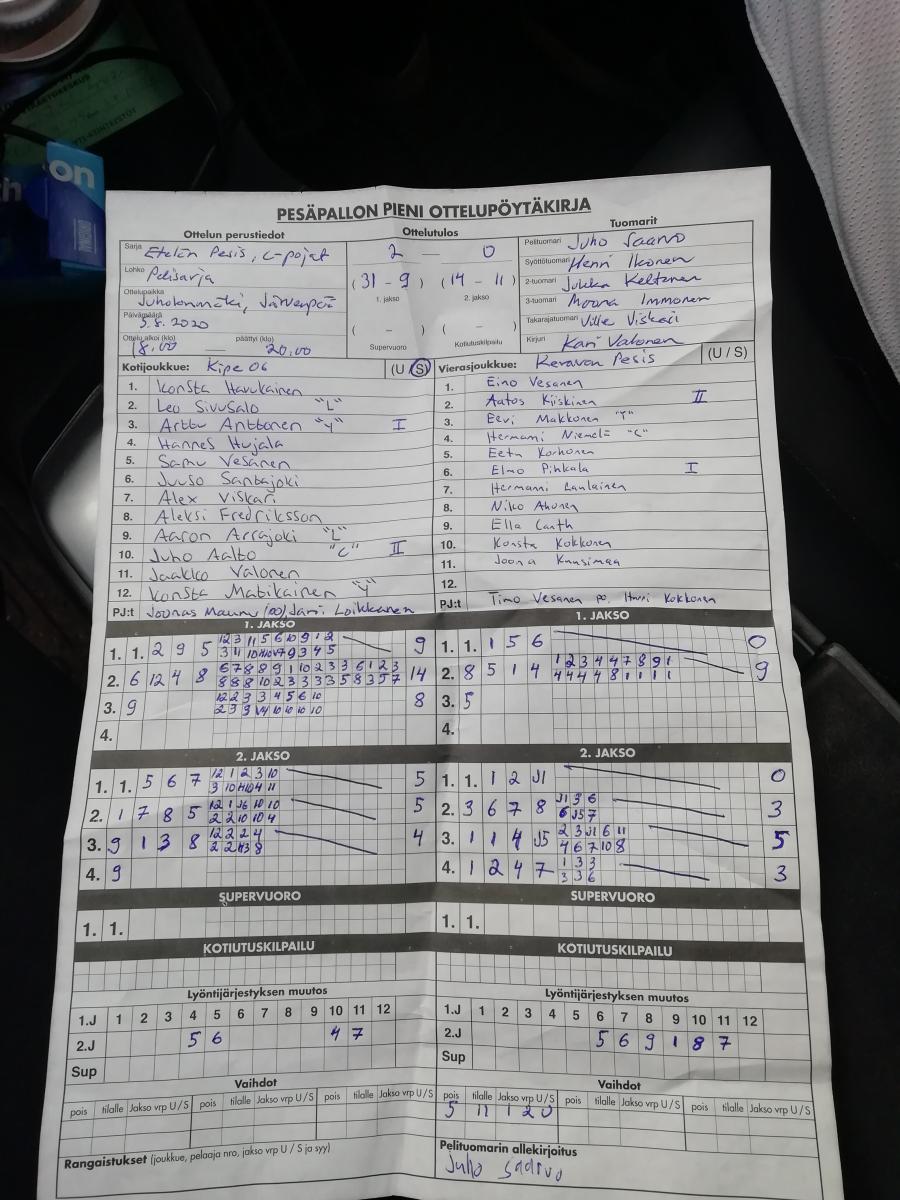 on
PESÄPALLON PIENI OTTELUPÖYTÄKIRJA
Ottelun perustiedot
Sarja Etelän Pesis, C-pojat
Lohko Pelisarja
Ottelupaikka
Juholanmäki, Järvenpää
Päivämäärä
5.8.2020
Ottelu alkoi (klo) päättyi (klo)
18.00 — 20.00
Ottelutulos
2 — 0
(31 - 9) (14 - 11)
1. jakso 2. jakso
( - ) ( - )
Supervuoro Kotiutuskilpailu
Tuomarit
Pelituomari Juho Saarvo
Syöttötuomari Henri Ikonen
2-tuomari Jukka Keltanen
3-tuomari Moona Immonen
Takarajatuomari Ville Viskari
Kirjuri Kari Valonen
Kotijoukkue: Kipe 06 (U / S)
1. Konsta Harukainen
2. Leo Sivusalo "L"
3. Arttu Anttonen "Y" I
4. Hannes Hujala
5. Samu Vesanen
6. Juuso Santajoki
7. Alex Viskari
8. Aleksi Fredriksson
9. Aaron Arrajoki "L"
10. Juho Aalto "C" II
11. Jaakko Valonen
12. Konsta Matikainen "Y"
PJ:t Joonas Maunu (oo) Jani Loikkanen
Vierasjoukkue: Keravan Pesis (U / S)
1. Eino Vesanen
2. Aatos Kiiskinen II
3. Eevi Makkonen "Y"
4. Hermanni Niemelä "C"
5. Eetu Korhonen
6. Elmo Pihkala I
7. Hermanni Laulainen
8. Niko Ahonen
9. Ella Canth
10. Konsta Kokkonen
11. Joona Kuusimaa
12.
PJ:t Timo Vesanen po, Harri Kokkonen
1. JAKSO
1. 1. 2 9 5 12 3 11 5 6 10 9 1 2 9
2. 6 12 4 8 6 7 8 8 9 1 10 2 3 3 6 1 2 3 14
8 8 8 10 2 3 3 3 3 5 8 3 5 7
3. 9 12 2 3 3 4 5 6 10 8
4.
1. JAKSO
1. 1. 1 5 6 0
2. 8 5 1 4 1 2 3 4 4 7 8 9 1 9
4 4 4 4 8 1 1 1 1
3. 5
4.
2. JAKSO
1. 1. 5 6 7 12 1 2 3 10 5
2. 1 7 8 5 5
2 2 10 10 4
3. 9 1 3 8 12 2 2 4 4
4. 9
2. JAKSO
1. 1. 1 2 J1 0
2. 3 6 7 8 J1 3 6 3
6 J5 7
3. 1 1 4 J5 2 3 J1 6 11 5
4 6 7 10 8
4. 1 2 4 7 1 3 3 3
3 3 6
SUPERVUORO
1. 1.
KOTIUTUSKILPAILU
SUPERVUORO
1. 1.
KOTIUTUSKILPAILU
Lyöntijärjestyksen muutos
1.J 1 2 3 4 5 6 7 8 9 10 11 12
2.J 5 6 4 7
Sup
Lyöntijärjestyksen muutos
1.J 1 2 3 4 5 6 7 8 9 10 11 12
2.J 5 6 9 1 8 7
Sup
Vaihdot
pois tilalle Jakso vrp U / S pois tilalle Jakso vrp U / S pois tilalle Jakso vrp U / S
Vaihdot
pois tilalle Jakso vrp U / S pois tilalle Jakso vrp U / S pois tilalle Jakso vrp U / S
5 11 1 2 U
Rangaistukset (joukkue, pelaaja nro, jakso vrp U / S ja syy)
Pelituomarin allekirjoitus
Juho Saarvo